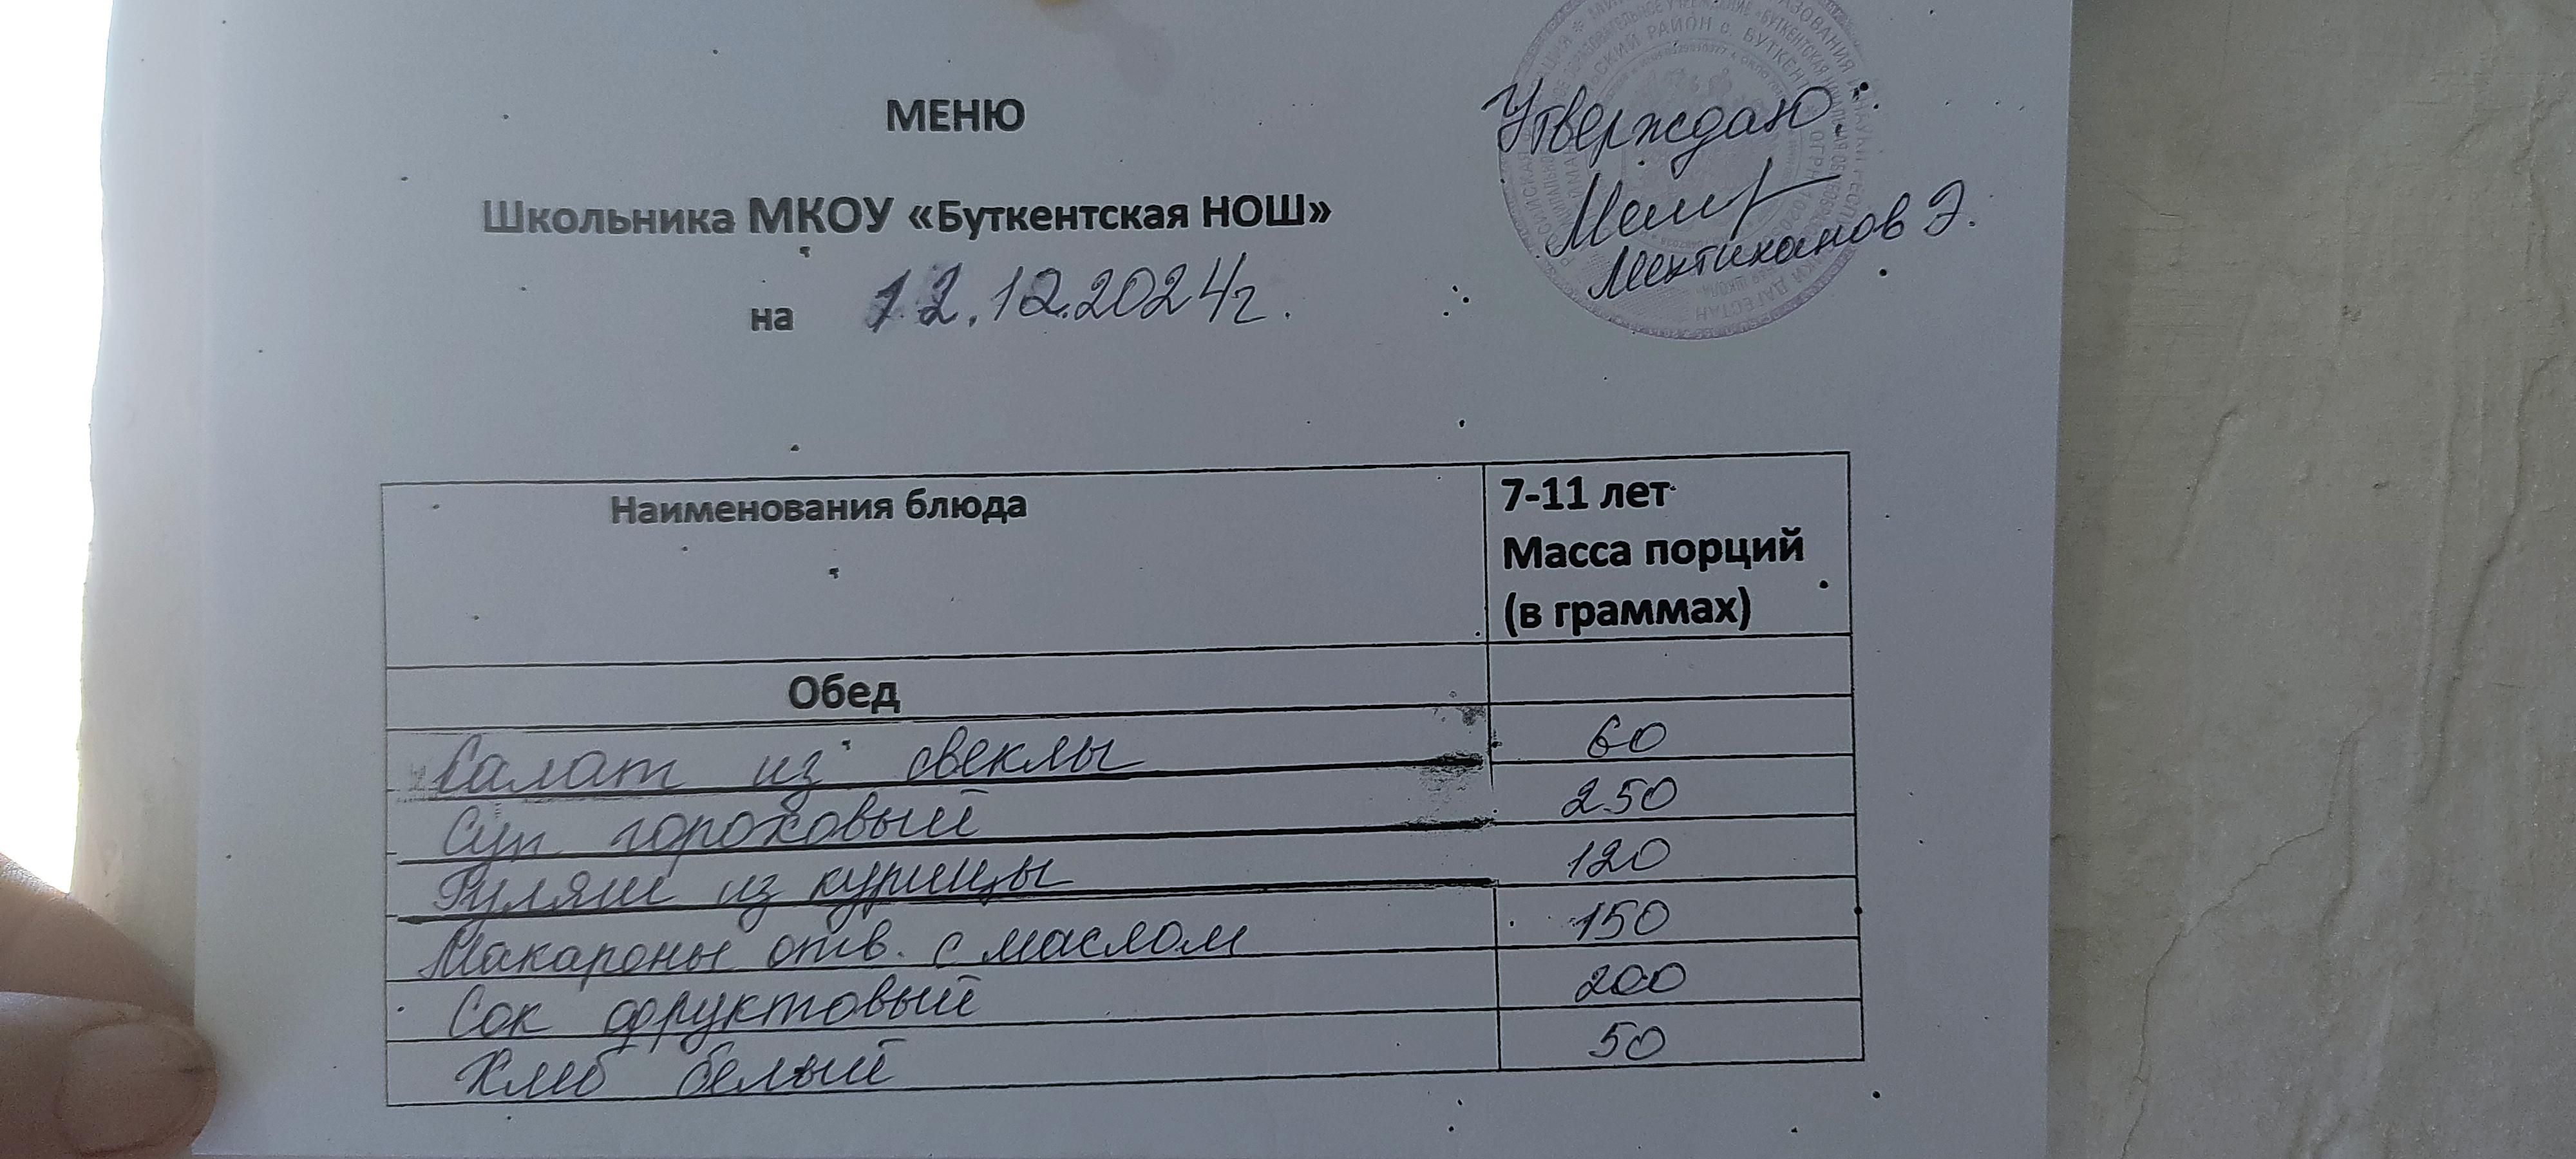 МЕНЮ
Утверждаю:
Школьника МКОУ «Буткентская НОШ»
Мехтиханов Э.
на 12.12.2024г.
Наименования блюда
7-11 лет
Масса порций
(в граммах)
Обед
Салат из свеклы 60
Суп гороховый 250
Гуляш из курицы 120
Макароны отв. с маслом 150
Сок фруктовый 200
Хлеб белый 50